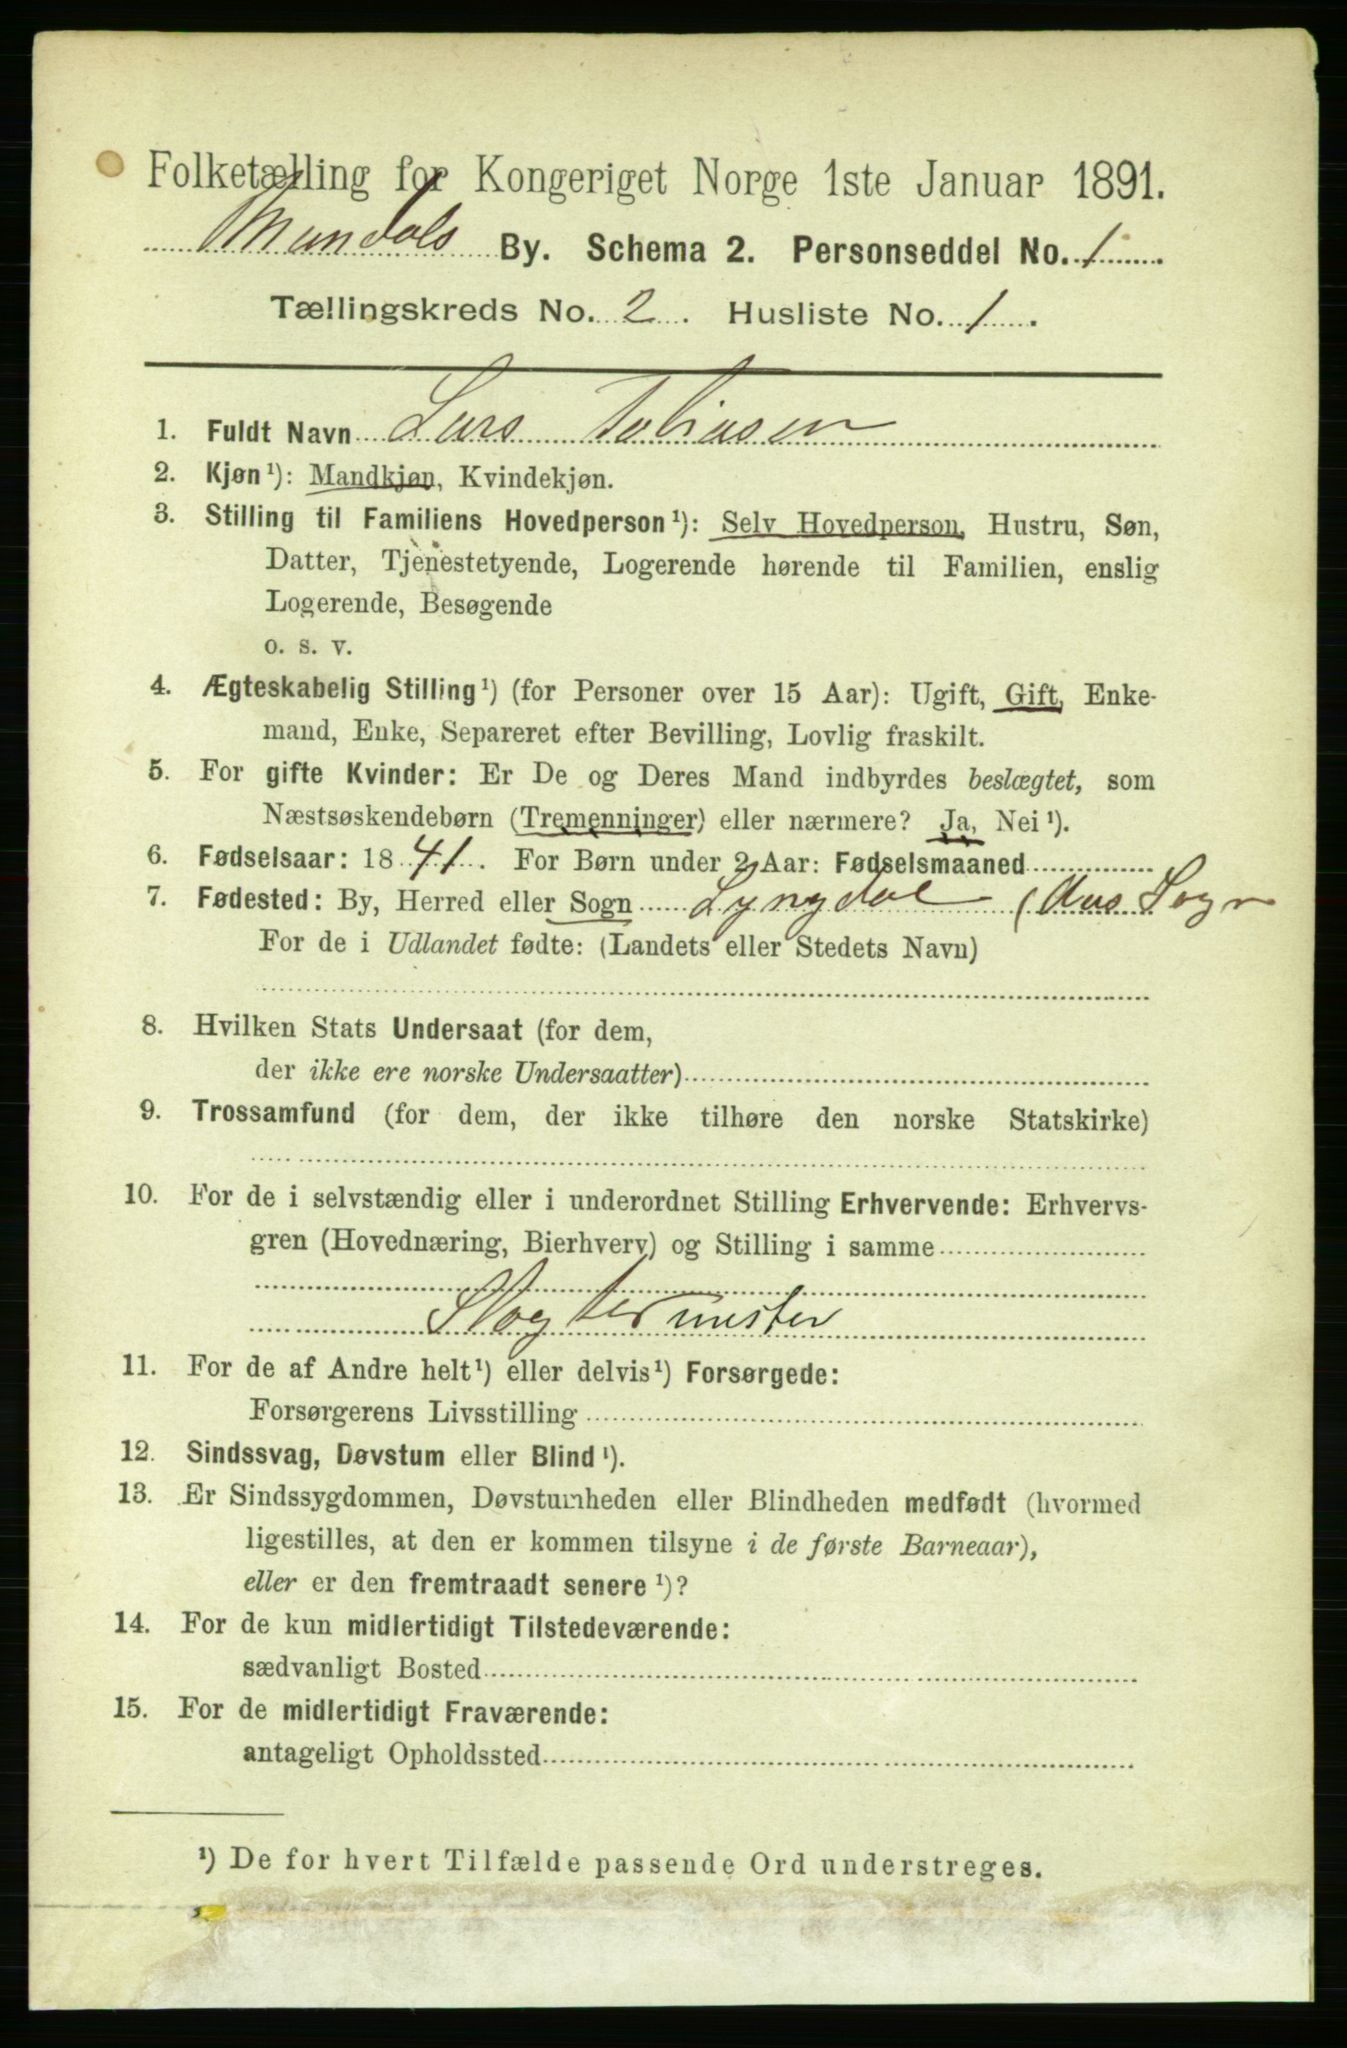 Folketælling for Kongeriget Norge 1ste Januar 1891.
Mandals By. Schema 2. Personseddel No. 1
Tællingskreds No. 2. Husliste No. 1.
1. Fuldt Navn Lars Tobiasen
2. Kjøn¹): Mandkjøn, Kvindekjøn.
3. Stilling til Familiens Hovedperson¹): Selv Hovedperson, Hustru, Søn,
Datter, Tjenestetyende, Logerende hørende til Familien, enslig
Logerende, Besøgende
o. s. v.
4. Ægteskabelig Stilling¹) (for Personer over 15 Aar): Ugift, Gift, Enke-
mand, Enke, Separeret efter Bevilling, Lovlig fraskilt.
5. For gifte Kvinder: Er De og Deres Mand indbyrdes beslægtet, som
Næstsøskendebørn (Tremenninger) eller nærmere? Ja, Nei¹).
6. Fødselsaar: 1841. For Børn under 2 Aar: Fødselsmaaned
7. Fødested: By, Herred eller Sogn Lyngdal (Aus Sogn
For de i Udlandet fødte: (Landets eller Stedets Navn)
8. Hvilken Stats Undersaat (for dem,
der ikke ere norske Undersaatter)
9. Trossamfund (for dem, der ikke tilhøre den norske Statskirke)
10. For de i selvstændig eller i underordnet Stilling Erhvervende: Erhvervs-
gren (Hovednæring, Bierhverv) og Stilling i samme
Slagtermester
11. For de af Andre helt¹) eller delvis¹) Forsørgede:
Forsørgerens Livsstilling
12. Sindssvag, Døvstum eller Blind¹).
13. Er Sindssygdommen, Døvstumheden eller Blindheden medfødt (hvormed
ligestilles, at den er kommen tilsyne i de første Barneaar),
eller er den fremtraadt senere¹)?
14. For de kun midlertidigt Tilstedeværende:
sædvanligt Bosted
15. For de midlertidigt Fraværende:
antageligt Opholdssted
¹) De for hvert Tilfælde passende Ord understreges.